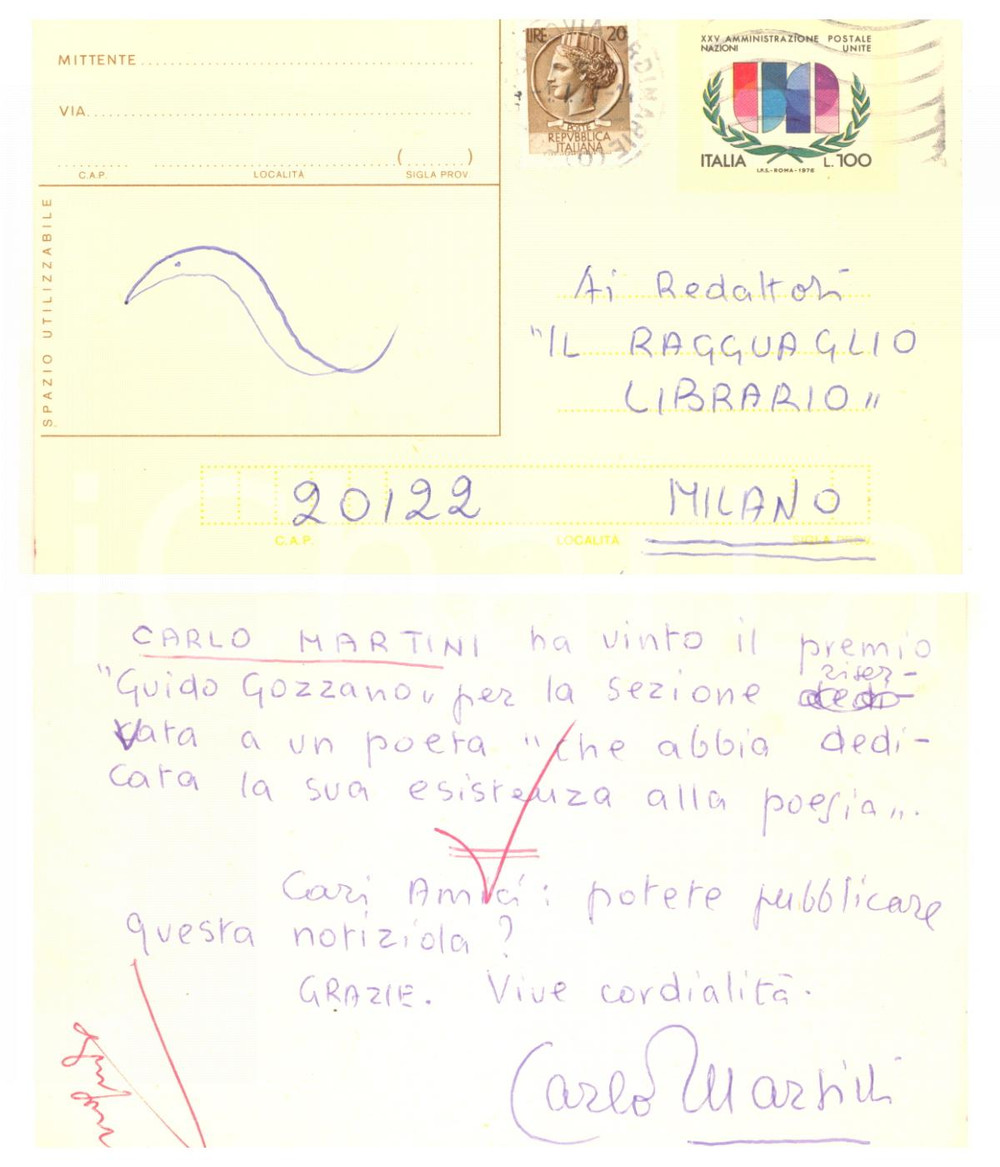 MITTENTE
VIA
( )
C.A.P. LOCALITÀ SIGLA PROV.
SPAZIO UTILIZZABILE
LIRE 20
POSTE
REPVBBLICA
ITALIANA
XXV AMMINISTRAZIONE POSTALE
NAZIONI UNITE
UN
ITALIA L.100
I.P.S.-ROMA-1976
Ai Redattori
"IL RAGGUAGLIO
LIBRARIO"
20122 MILANO
C.A.P. LOCALITÀ SIGLA PROV.
CARLO MARTINI ha vinto il premio
"Guido Gozzano" per la sezione riser-
vata a un poeta "che abbia dedi-
cata la sua esistenza alla poesia".
Cari Amici: potete pubblicare
questa notiziola?
GRAZIE. Vive cordialità.
Carlo Martini